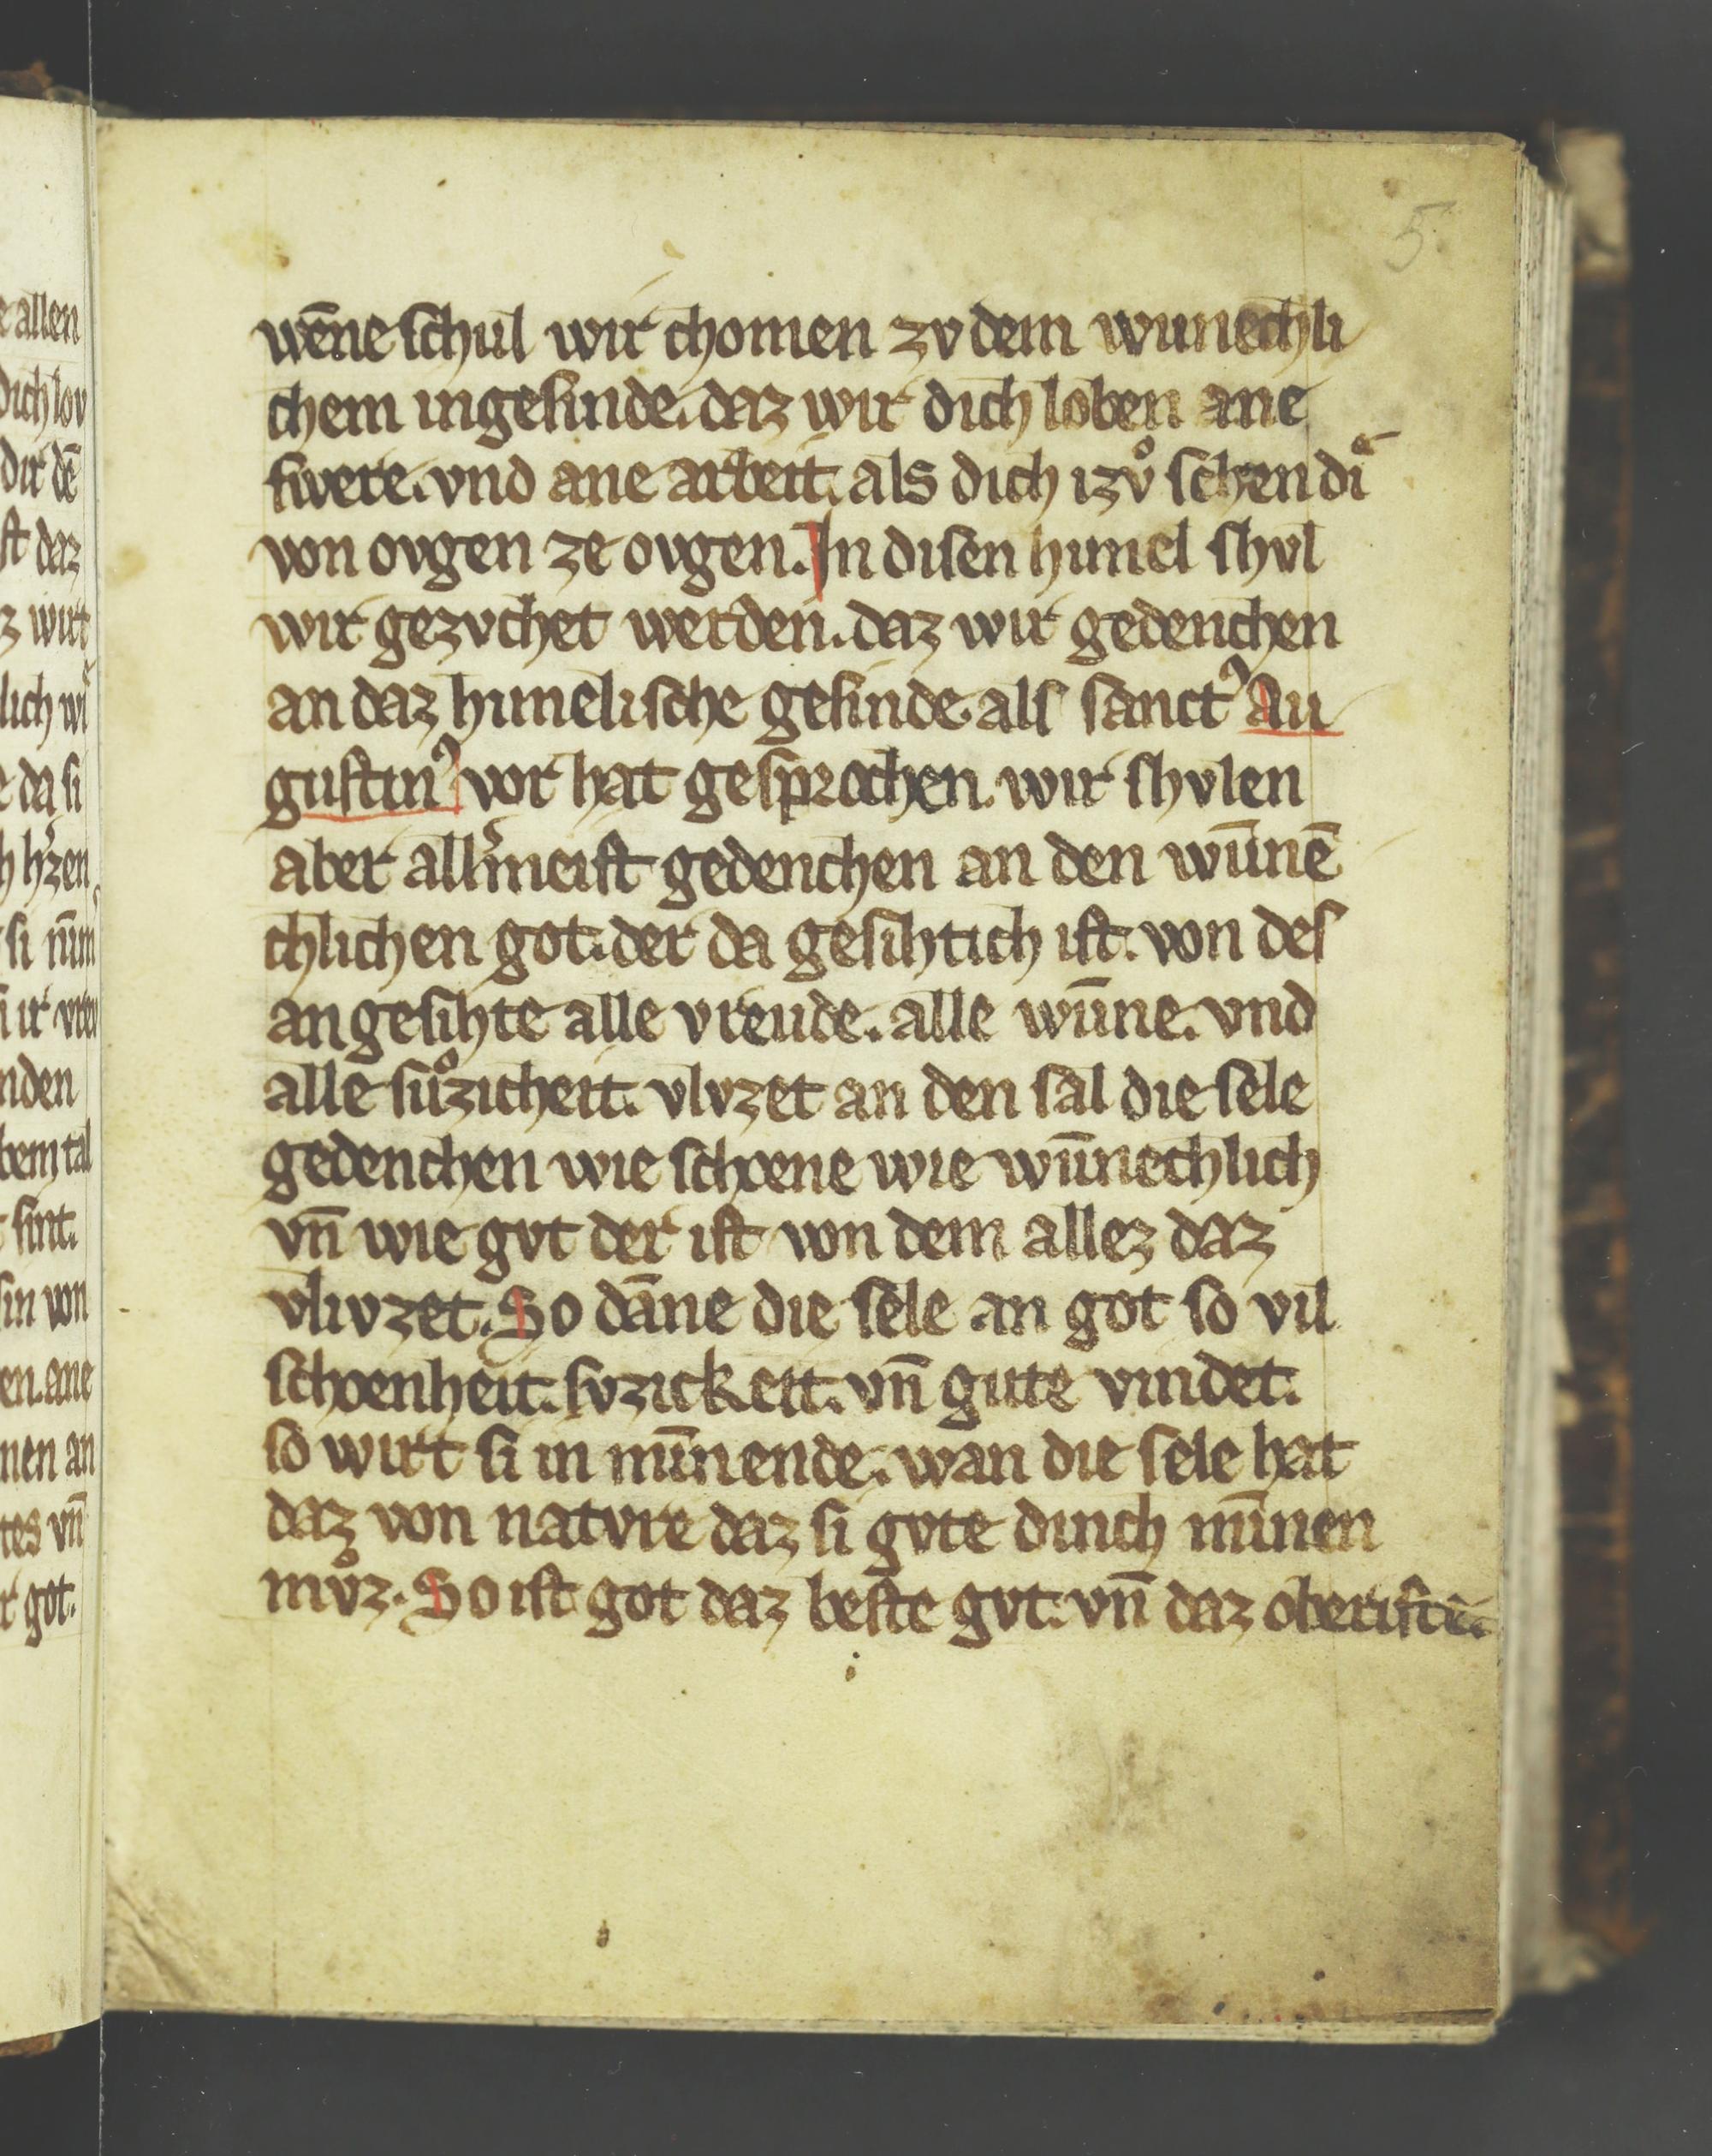 5.
wēne schul wir chomen zv dem wunechli
chem ingesinde. daz wir dich loben ane
swere. vnd ane arbeit. als dich izvͦ sehen diͤ
von ovgen ze ovgen. In disen himel shvl
wir gezvchet werden. daz wir gedenchen
an daz himelische gesinde. als sanctꝰ Au
gustinꝰ vor hat gesprochen. wir shvlen
aber allͬmeist gedenchen an den wūnē
chlichen got. der da gesihtich ist. von des
angesihte alle vreude. alle wūne. vnd
alle suͦzicheit. vlvzet an den sal die sele
gedenchen wie schoene wie wūnechlich
vn̄ wie gvt der ist von dem allez daz
vlivzet. So dāne die sele an got so vil
schoenheit. svzickeit. vn̄ gute vindet.
so wirt si in mīnende. wan die sele hat
daz von natvre daz si gvte durch mīnen
mvͦz. So ist got daz beste gvt. vn̄ daz oberiste.